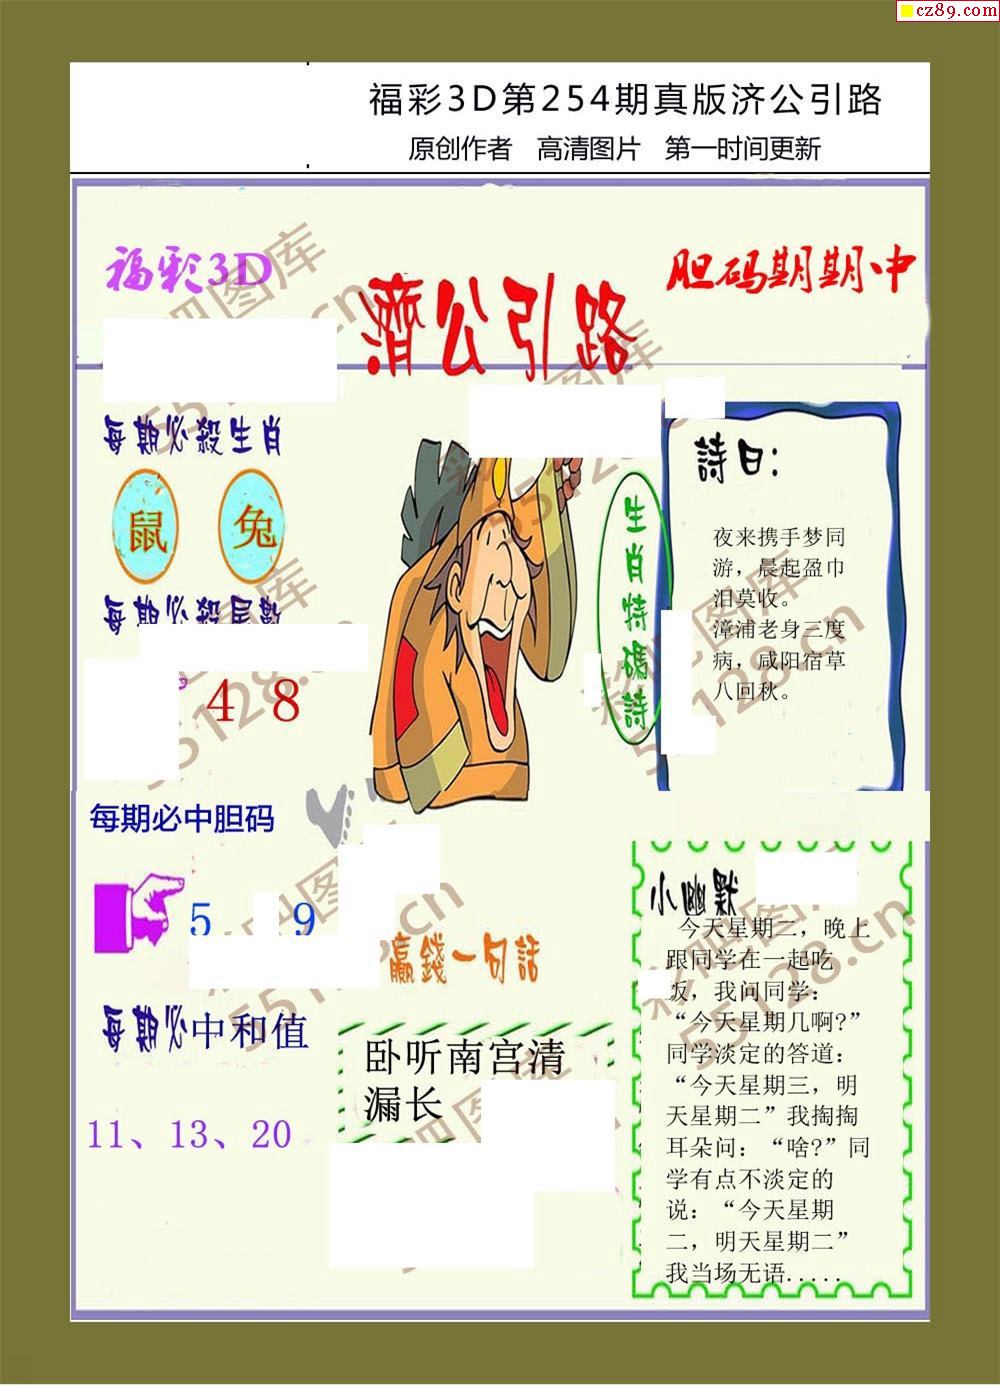 cz89.com
福彩3D第254期真版济公引路
原创作者 高清图片 第一时间更新
福彩3D
胆码期期中
濟公引路
每期必殺生肖
鼠 兔
每期必殺尾數
4 8
每期必中胆码
5 9
每期必中和值
11、13、20
生肖特碼詩
詩曰：
夜来携手梦同
游，晨起盈巾
泪莫收。
漳浦老身三度
病，咸阳宿草
八回秋。
赢錢一句話
卧听南宫清
漏长
小幽默
今天星期二，晚上
跟同学在一起吃
饭，我问同学：
“今天星期几啊?”
同学淡定的答道：
“今天星期三，明
天星期二”我掏掏
耳朵问：“啥?”同
学有点不淡定的
说：“今天星期
二，明天星期二”
我当场无语.....
彩吧图库
55128.cn